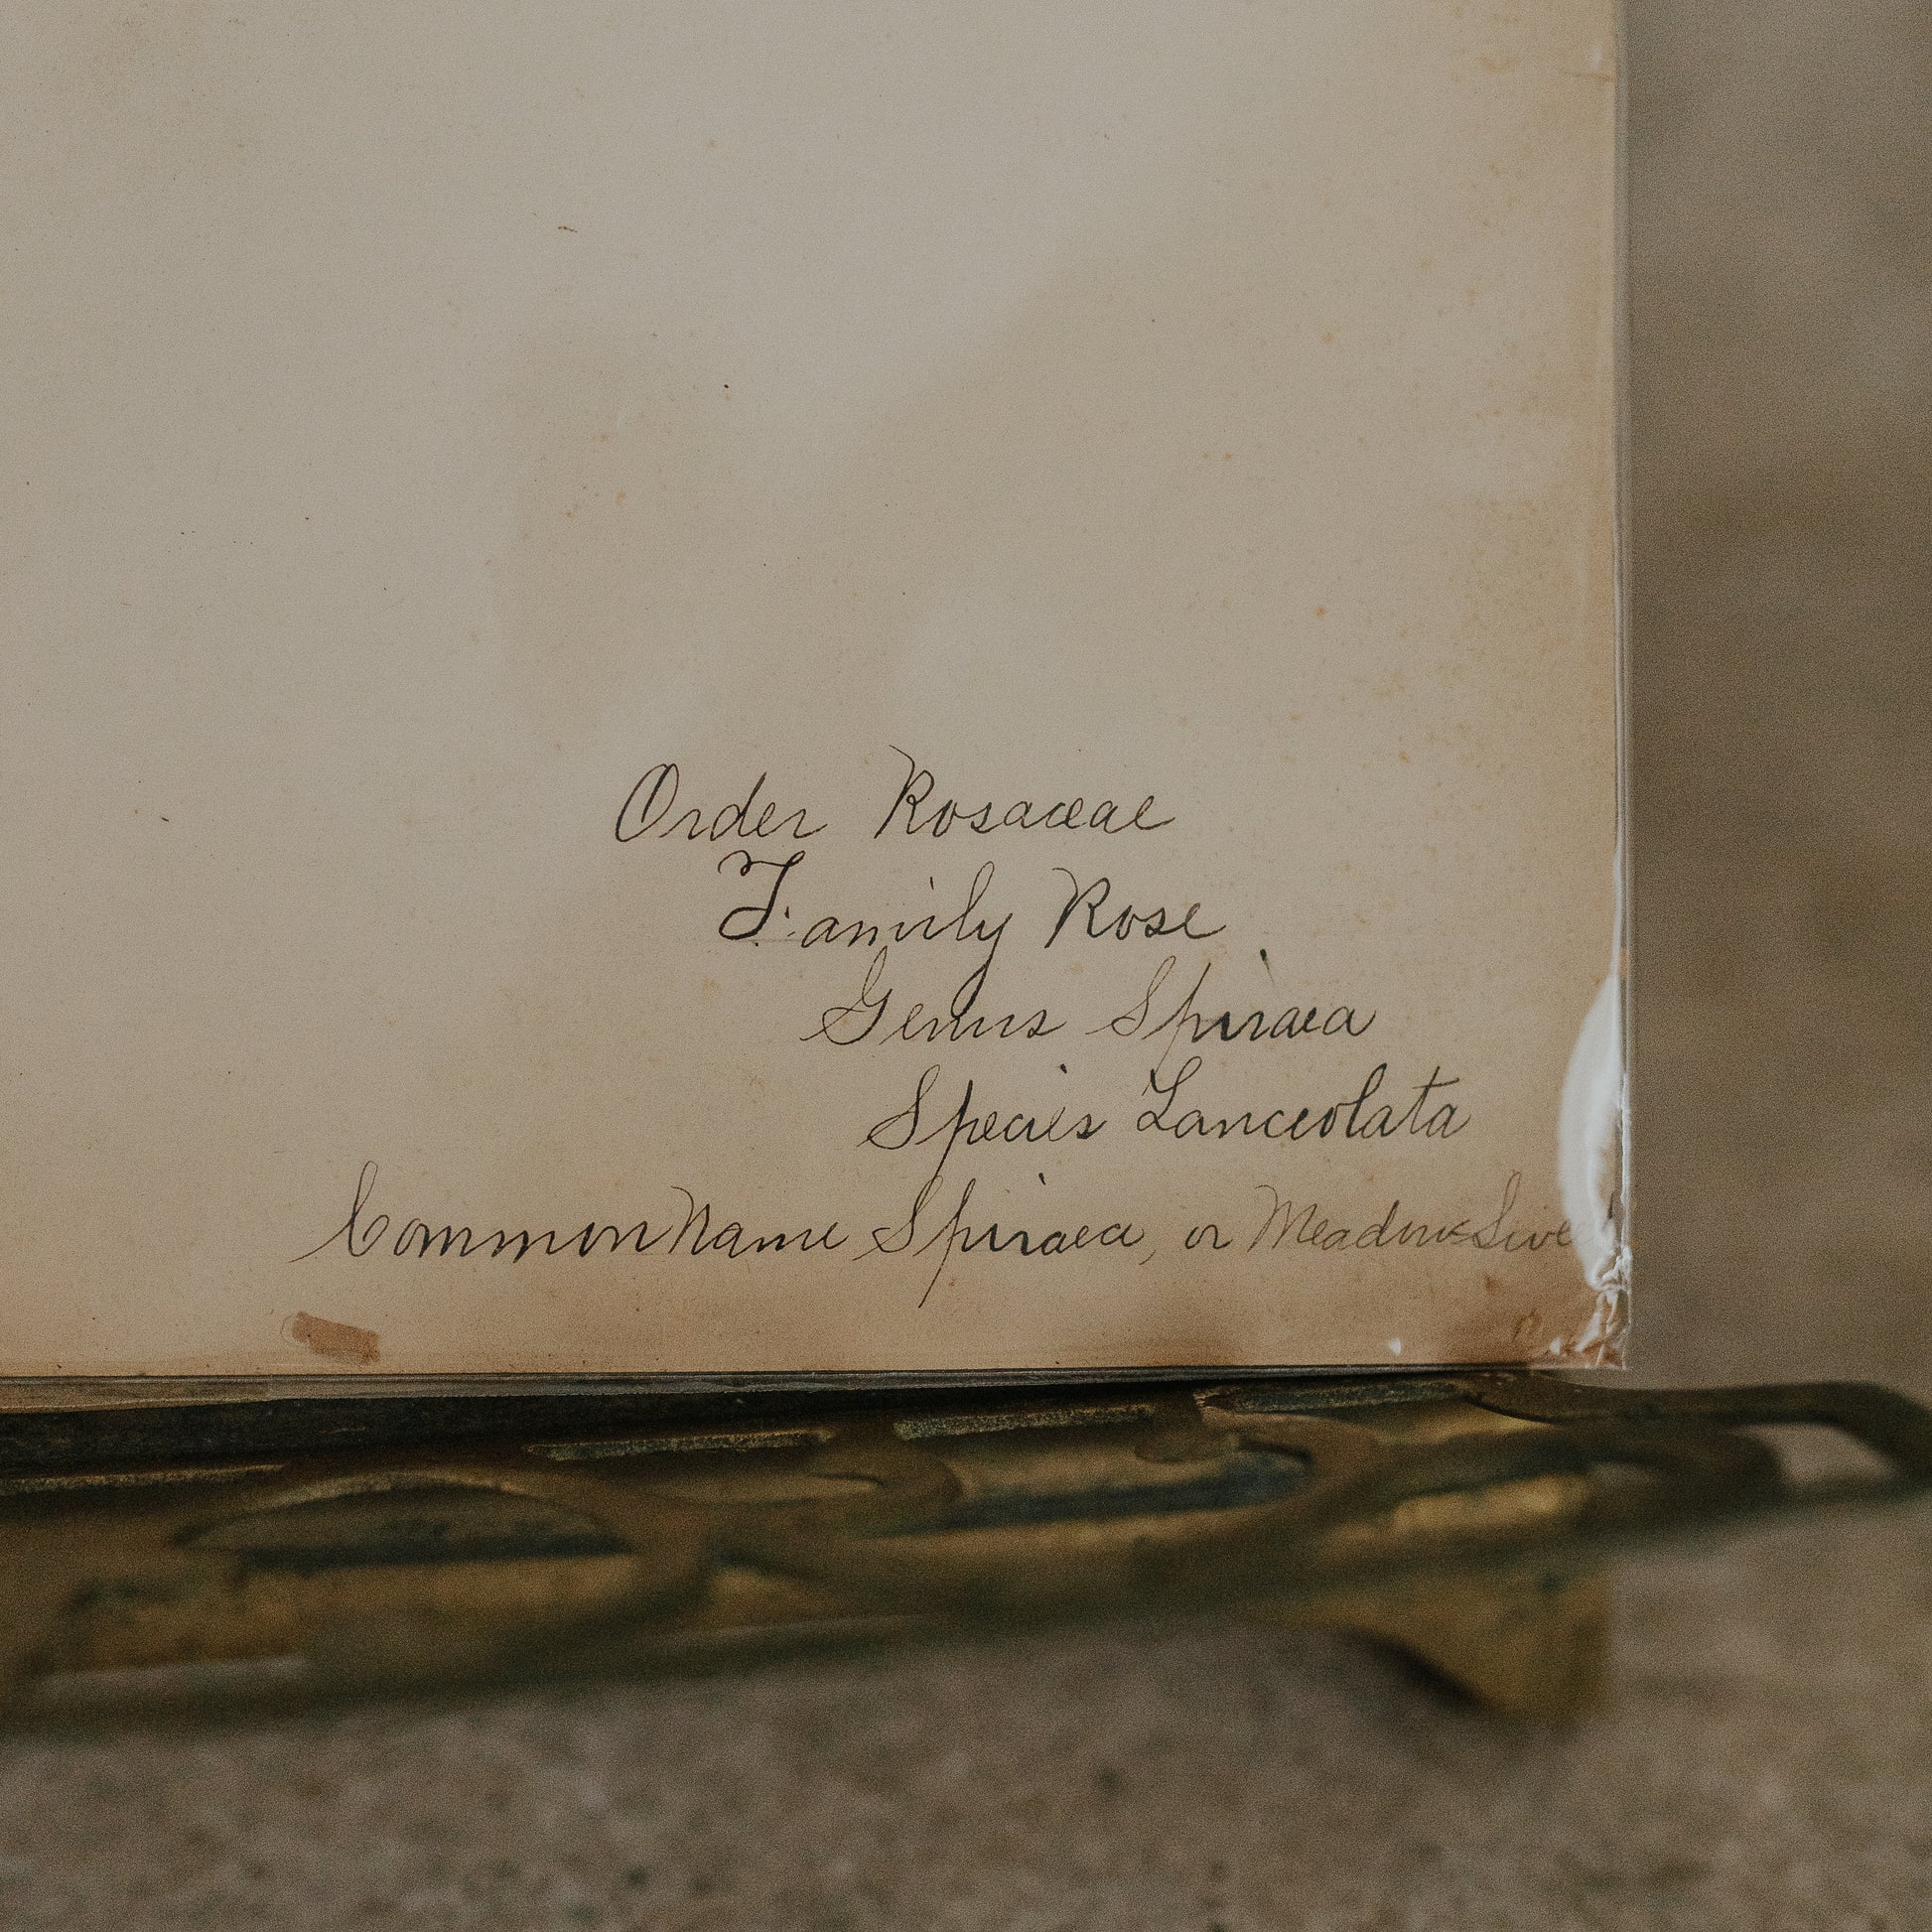 Order Rosaceae
Family Rose
Genus Spiraea
Species Lanceolata
Common Name Spiraea, or Meadow